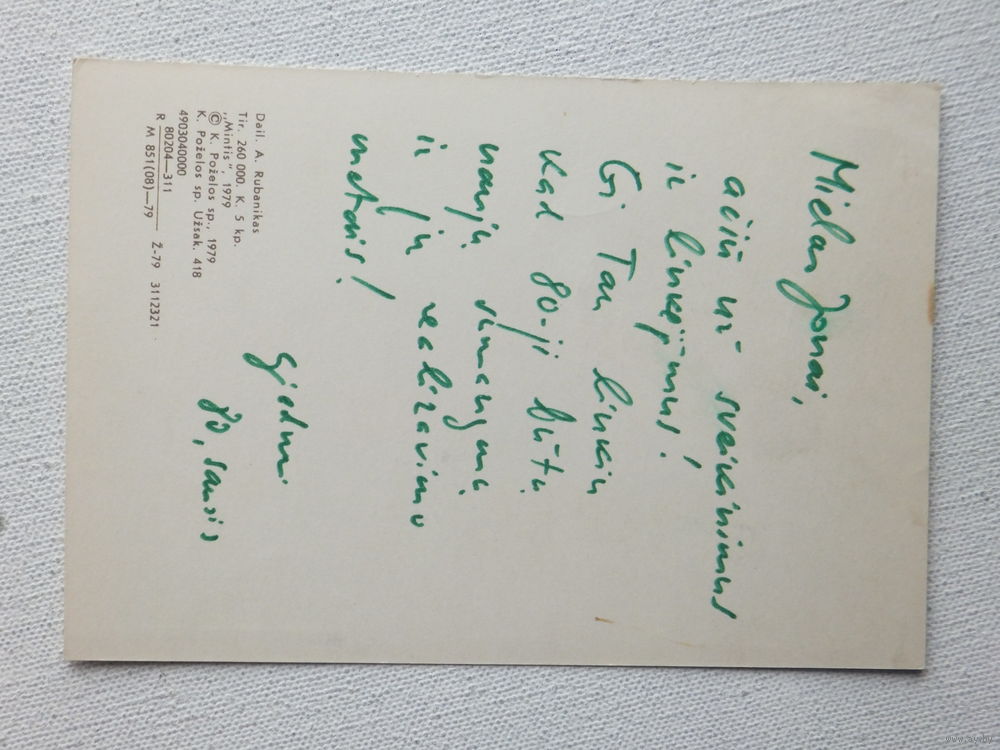 Mielas Jonai,
ačiū už sveikinimus
ir linkėjimus!
Gi Tau linkiu
kad 80-ji būtų
naujų sumanymų
ir jų realizavimo
metais!
80, sausis
Dail. A. Rubanikas
Tir. 260 000. K. 5 kp.
„Mintis", 1979
© K. Poželos sp., 1979
K. Poželos sp. Užsak. 418
4903040000
R 80204—311
M 851(08)—79 Ž-79 3112321
www.ay.by